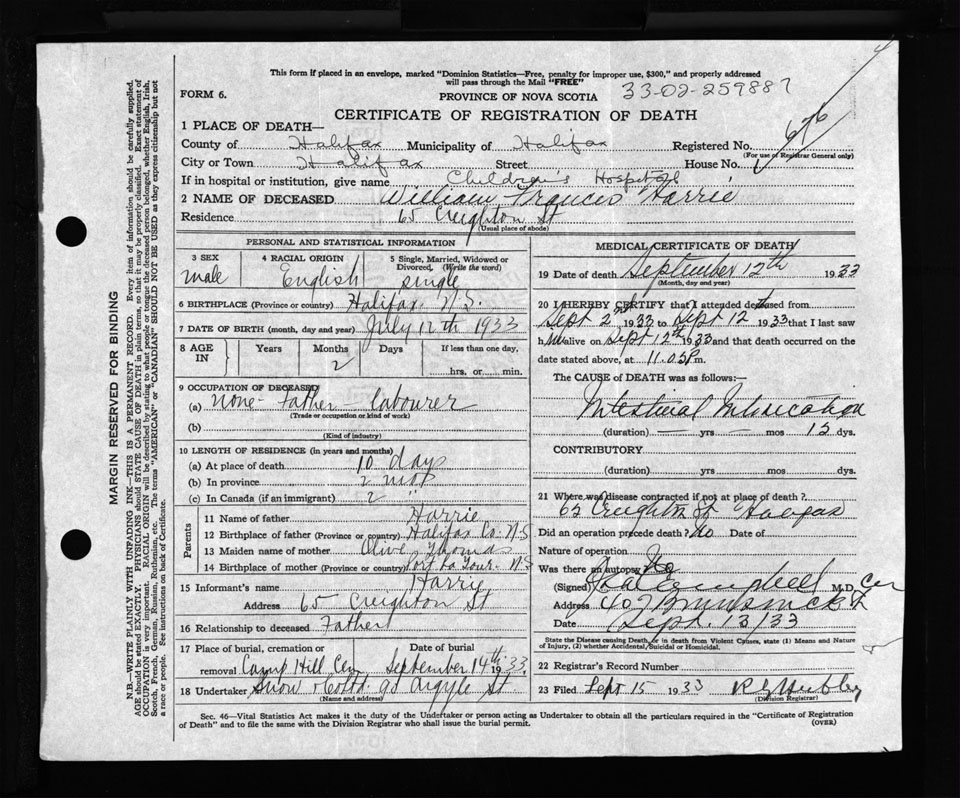 This form if placed in an envelope, marked "Dominion Statistics—Free, penalty for improper use, $300," and properly addressed
will pass through the Mail "FREE"
33-02-259887
FORM 6.
PROVINCE OF NOVA SCOTIA
CERTIFICATE OF REGISTRATION OF DEATH
1 PLACE OF DEATH—
County of Halifax Municipality of Halifax Registered No. 676
(For use of Registrar General only)
City or Town Halifax Street House No.
If in hospital or institution, give name Children's Hospital
2 NAME OF DECEASED William Francis Harrie
Residence 65 Creighton St
(Usual place of abode)
PERSONAL AND STATISTICAL INFORMATION
3 SEX male
4 RACIAL ORIGIN English
5 Single, Married, Widowed or Divorced, (Write the word) single
6 BIRTHPLACE (Province or country) Halifax N.S.
7 DATE OF BIRTH (month, day and year) July 12th 1933
8 AGE IN Years Months 2 Days If less than one day,
hrs. or min.
9 OCCUPATION OF DECEASED
(a) none - Father labourer
(Trade or occupation or kind of work)
(b)
(Kind of industry)
10 LENGTH OF RESIDENCE (in years and months)
(a) At place of death 10 days
(b) In province 2 mos
(c) In Canada (if an immigrant) 2 "
Parents
11 Name of father Harrie
12 Birthplace of father (Province or country) Halifax Co. N.S
13 Maiden name of mother Olive Thomas
14 Birthplace of mother (Province or country) Port La Tour. N.S
15 Informant's name Harrie
Address 65 Creighton St
16 Relationship to deceased Father
17 Place of burial, cremation or Date of burial
removal Camp Hill Cem September 14th 1933
18 Undertaker Snow & Co Ltd 90 Argyle St
(Name and address)
MEDICAL CERTIFICATE OF DEATH
19 Date of death September 12th 1933
(Month, day and year)
20 I HEREBY CERTIFY that I attended deceased from
Sept 2nd 1933 to Sept 12 1933 that I last saw
him alive on Sept 12th 1933 and that death occurred on the
date stated above, at 11.05 P m.
The CAUSE of DEATH was as follows:—
Intestinal Intoxication
(duration) — yrs — mos 12 dys.
CONTRIBUTORY
(duration) yrs mos dys.
21 Where was disease contracted if not at place of death?
65 Creighton St Halifax
Did an operation precede death? No Date of
Nature of operation
Was there an autopsy? No
(Signed) Campbell M.D.
Address 407 Brunswick St
Date Sept. 13/33
State the Disease causing Death, or in death from Violent Causes, state (1) Means and Nature
of Injury, (2) whether Accidental, Suicidal or Homicidal.
22 Registrar's Record Number
23 Filed Sept 15 1933
(Division Registrar)
Sec. 46—Vital Statistics Act makes it the duty of the Undertaker or person acting as Undertaker to obtain all the particulars required in the "Certificate of Registration
of Death" and to file the same with the Division Registrar who shall issue the burial permit. (OVER)
MARGIN RESERVED FOR BINDING
N.B.—WRITE PLAINLY WITH UNFADING INK—THIS IS A PERMANENT RECORD. Every item of information should be carefully supplied.
AGE should be stated EXACTLY. PHYSICIANS should STATE CAUSE OF DEATH in plain terms, so that it may be properly classified. Exact statement of
OCCUPATION is very important. RACIAL ORIGIN will be described by stating to what people or tongue the deceased person belonged, whether English, Irish,
Scotch, French, German, Russian, Ruthenian, etc. The terms "AMERICAN" or "CANADIAN" SHOULD NOT BE USED as they express citizenship but not
a race or people. See instructions on back of Certificate.